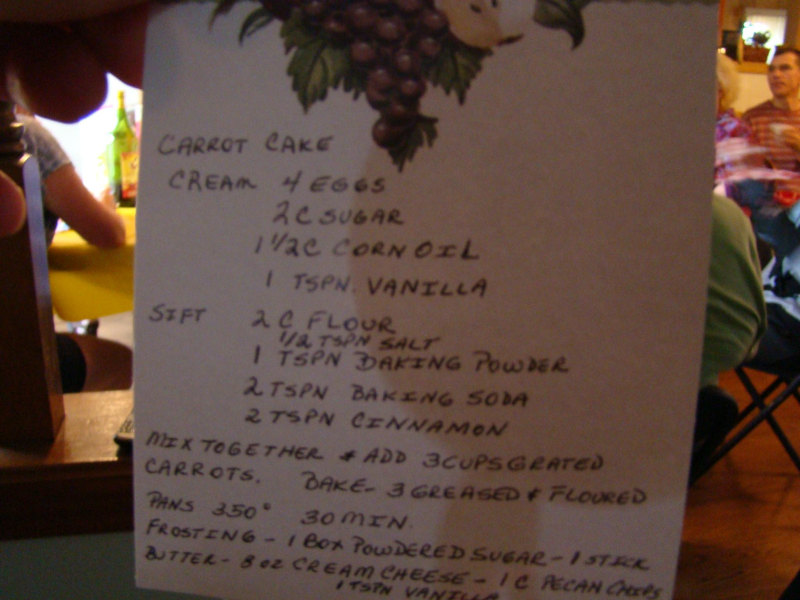 CARROT CAKE
CREAM 4 EGGS
2 C SUGAR
1 1/2 C CORN OIL
1 TSPN. VANILLA
SIFT 2 C FLOUR
1/2 TSPN SALT
1 TSPN BAKING POWDER
2 TSPN BAKING SODA
2 TSPN CINNAMON
MIX TOGETHER & ADD 3 CUPS GRATED
CARROTS. BAKE - 3 GREASED & FLOURED
PANS 350° 30 MIN.
FROSTING - 1 BOX POWDERED SUGAR - 1 STICK
BUTTER - 8 OZ CREAM CHEESE - 1 C PECAN CHIPS
1 TSPN VANILLA